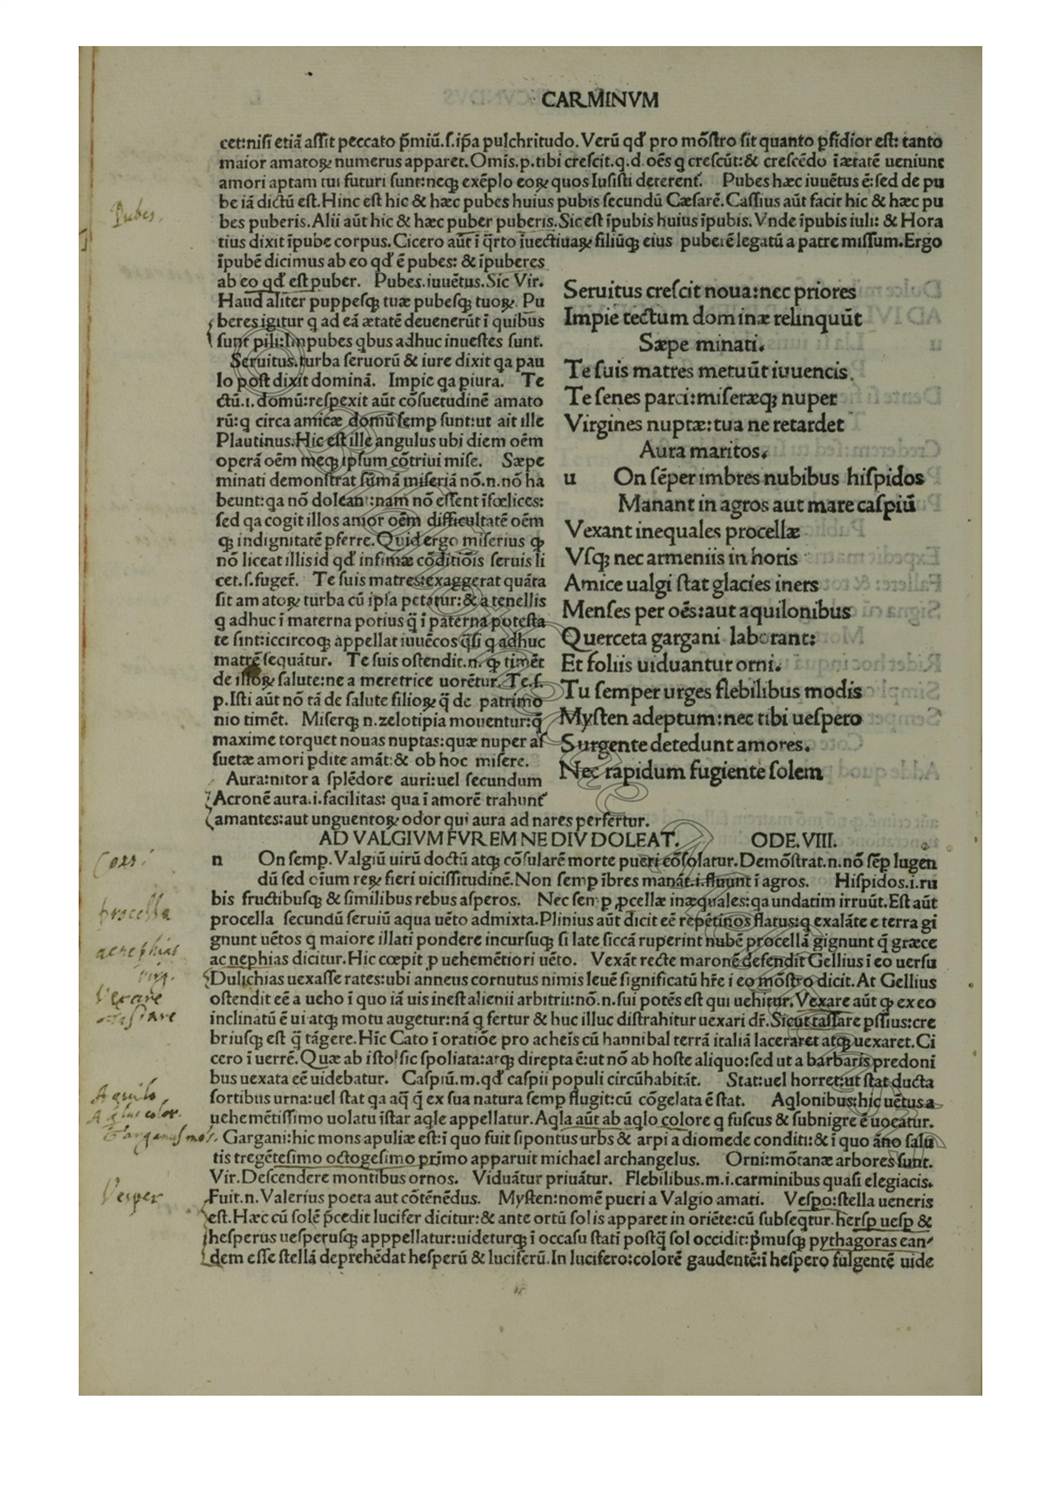 CARMINVM
cet:nisi etiā assit peccato p̄miū.s.ip̄a pulchritudo. Verū qd' pro mōstro sit quanto p̄fidior est: tanto
maior amatoꝝ numerus apparet. Omis.p.tibi crescit.q.d.oēs q crescūt:& crescēdo ī ætatē ueniunt
amori aptam tui futuri sunt:neqꝫ exēplo eoꝝ quos lusisti deterent'. Pubes hæc iuuētus ē:sed de pu
be iā dictū est. Hinc est hic & hæc pubes huius pubis secundū Cæsarē. Cassius aūt facit hic & hæc pu
bes puberis. Alii aūt hic & hæc puber puberis. Sic est īpubis huius īpubis. Vnde īpubis iuli: & Hora
tius dixit īpube corpus. Cicero aūt ī q̄rto īuectiuaꝝ filiūqꝫ eius puberē legatū a patre missum. Ergo
īpubē dicimus ab eo qd' ē pubes: & īpuberes
ab eo qd' est puber. Pubes.iuuētus. Sic Vir.
Haud aliter puppesqꝫ tuæ pubesqꝫ tuoꝝ. Pu
beres igitur q ad eā ætatē deuenerūt ī quibus
sunt pili: Impubes qbus adhuc inuestes sunt.
Seruitus.turba seruorū & iure dixit qa pau
lo post dixit dominā. Impie qa piura. Te
ctū.i.domū:respexit aūt cōsuetudinē amato
rū:q circa amicæ domū semp sunt:ut ait ille
Plautinus. Hic est ille angulus ubi diem oēm
operā oēm meqꝫ ipsum cōtriui mise. Sæpe
minati demonstrat sūmā miseriā nō.n.nō ha
beunt:qa nō doleant':nam nō essent īfœlices:
sed qa cogit illos amor oēm difficultatē oēm
qꝫ indignitatē pferre. Quid ergo miserius qꝫ
nō liceat illis id qd' infimæ cōditiōis seruis li
cet.s.fugeř. Te suis matres:exaggerat quāta
sit amatoꝝ turba cū ipsa petatur:& a tenellis
q adhuc ī materna potius q̄ ī paterna potesta
te sint:iccircoqꝫ appellat iuuēcos q̄si q adhuc
matrē sequātur. Te suis ostendit.n.qꝫ timēt
de illoꝝ salute:ne a meretrice uorētur. Te.s.
p.Isti aūt nō tā de salute filioꝝ q̄ de patrimo
nio timēt. Miserqꝫ.n.zelotipia mouentur:q̄
maxime torquet nouas nuptas:quæ nuper as
suetæ amori pdite amāt:& ob hoc misere.
Aura:nitor a splēdore auri:uel secundum
Acronē aura.i.facilitas: qua ī amorē trahunt'
amantes:aut unguentoꝝ odor qui aura ad nares perfertur.
Seruitus crescit noua:nec priores
Impie tectum dominæ relinquūt
Sæpe minati.
Te suis matres metuūt iuuencis,
Te senes parci:miseræqꝫ nuper
Virgines nuptæ:tua ne retardet
Aura maritos.
u On sēper imbres nubibus hispidos
Manant in agros aut mare caspiū
Vexant inequales procellæ
Vsqꝫ nec armeniis in horis
Amice ualgi stat glacies iners
Menses per oēs:aut aquilonibus
Querceta gargani laborant:
Et foliis uiduantur orni.
Tu semper urges flebilibus modis
Mysten adeptum:nec tibi uespero
Surgente detedunt amores.
Nec rapidum fugiente solem
AD VALGIVM FVREM NE DIV DOLEAT. ODE.VIII.
n On semp. Valgiū uirū doctū atqꝫ cōsularē morte pueri cōsolatur. Demōstrat.n.nō sēp lugen
dū sed oīum reꝝ fieri uicissitudinē. Non semp ībres manāt.i.fluunt ī agros. Hispidos.i.ru
bis fructibusqꝫ & similibus rebus asperos. Nec sem p pcellæ inæquales:qa undatim irruūt. Est aūt
procella secundū seruiū aqua uēto admixta. Plinius aūt dicit eē repētinos flatus:iq exalāte e terra gi
gnunt uētos q maiore illati pondere incursuqꝫ si late siccā ruperint nubē procellā gignunt q̄ græce
ac nephias dicitur. Hic cœpit p uehemētiori uēto. Vexāt recte maronē defendit Gellius ī eo uersu
Dulichias uexasse rates:ubi anneus cornutus nimis leuē significatū hře i eo mōstro dicit. At Gellius
ostendit eē a ueho ī quo iā uis inest alienii arbitrii:nō.n.sui potēs est qui uehitur. Vexare aūt qꝫ ex eo
inclinatū ē ui atqꝫ motu augetur:nā q fertur & huc illuc distrahitur uexari dř. Sicut tassare pssius:cre
briusqꝫ est q̄ tāgere. Hic Cato ī oratiōe pro acheis cū hannibal terrā italiā laceraret atqꝫ uexaret. Ci
cero ī uerrē. Quæ ab īsto sic spoliata:atqꝫ direpta ē:ut nō ab hoste aliquo:sed ut a barbaris predoni
bus uexata eē uidebatur. Caspiū.m.qd' caspii populi circūhabitāt. Stat:uel horret:ut stat ducta
sortibus urna:uel stat qa aq̄ q̄ ex sua natura semp flugit:cū cōgelata ē stat. Aqlonibus:hic uētus a
uehemētissimo uolatu īstar aqle appellatur. Aqla aūt ab aqlo colore q fuscus & subnigre ē uocatur.
Gargani:hic mons apuliæ est:ī quo fuit sipontus urbs & arpi a diomede conditi:& ī quo āno salu
tis tregētesimo octogesimo prīmo apparuit michael archangelus. Orni:mōtanæ arbores sunt.
Vir. Descendere montibus ornos. Viduātur priuātur. Flebilibus.m.i.carminibus quasi elegiacis.
Fuit.n. Valerius poeta aut cōtēnēdus. Mysten:nomē pueri a Valgio amati. Vespo:stella ueneris
est. Hæc cū solē p̄cedit lucifer dicitur:& ante ortū solis apparet in oriēte:cū subseqtur.hersp uesp &
hesperus uesperusqꝫ apppellatur:uideturqꝫ ī occasu stati postq̄ sol occidit:p̄musqꝫ pythagoras ean
dem esse stellā deprehēdat hesperū & luciferū. In lucifero:colorē gaudentē:ī hespero fulgentē uide
Pubes.
procella
Vexare
Aquilo
Vesper